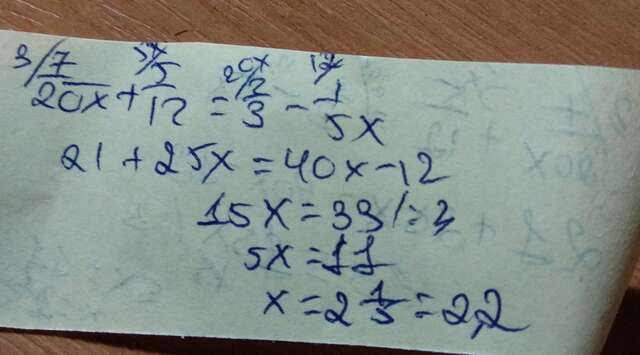 3/ 7/20x + 5x/ 5/12 = 20x/ 2/3 - 12/ 1/5x
21 + 25x = 40x - 12
15x = 33 /:3
5x = 11
x = 2 1/5 = 2,2